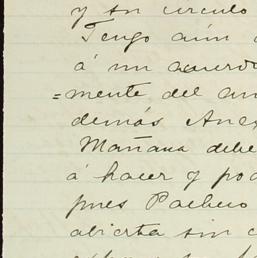 y su circulo
Tengo aún
á un acuerdo
=mente del
demás Anex
Mañana debe
á hacer y pod
pues Pacheco
abierta sin c